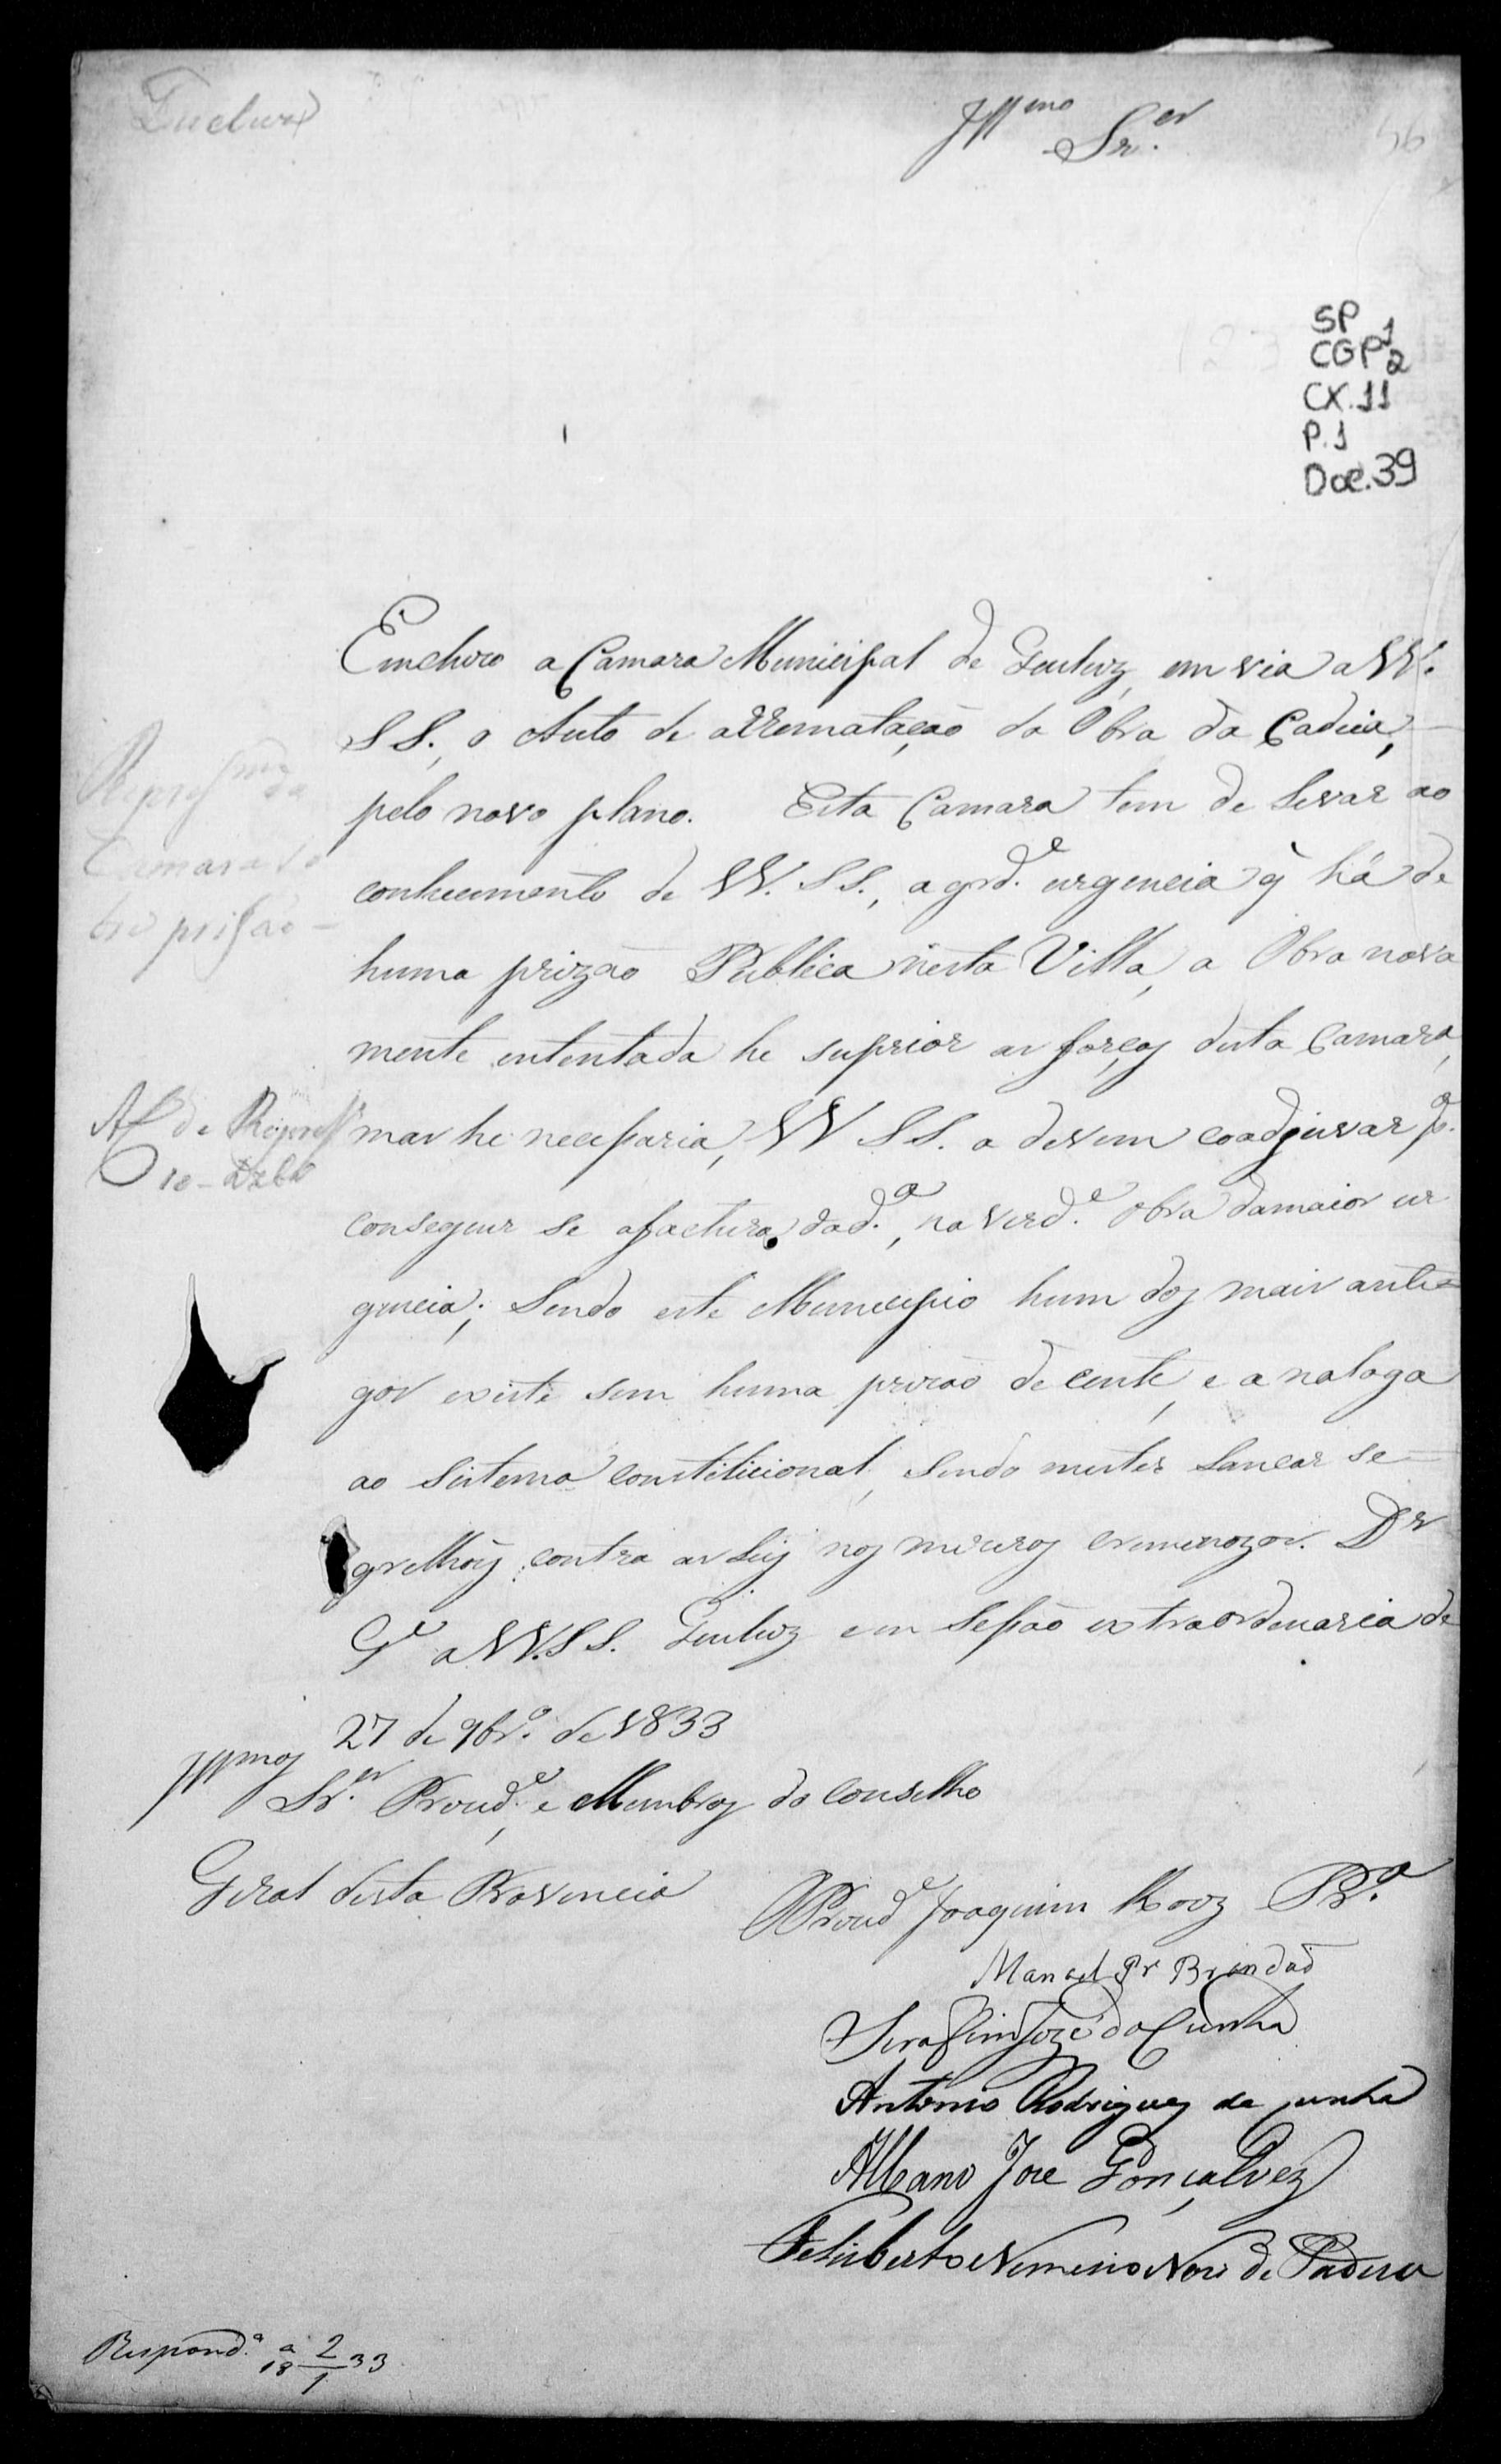 Queluz
Illmos
Snr.es
56
SP 1
CGP 2
CX. 11
P. 1
Doc. 39
Incluzo a Camara Municipal de Queluz, em via a VV.
SS., o Auto de arrematação da Obra da Cadeia,
pelo novo plano. Esta Camara tem de levar ao
conhecimento de VV. SS., a grd.e urgencia q̃ há de
huma prizão Publica nesta Villa, a Obra nova
mente ententada he suprior as forças desta Camara,
mas he necessaria, VV SS. a devem coadjuvar p.a
conseguir se afactura da d.a, na verd.e obra damaior ur
gencia; Sendo este Municipio hum dos mais anti=
gos existe sem huma prizão decente, e analoga
ao sistema constitucional, sendo mister lançar se
grilhoẽs contra as Leis nos mizeros creminozos. Ds
G.e a VV.SS. Queluz em Sessão extraordenaria de
27 de 9br.o de 1833
Illmos
Snr.es Prezid.e, e Membros do Conselho
Geral desta Provincia
Represm da
Camara so
bre prisão
Af de Represm
10 - Dzbr
O Prezid.e Joaquim
Manoel Pr Brandão
Serafim José da Cunha
Antonio Rodrigues da Cunha
Albano Jose Gonçalvez
Felisberto Nemesio
Respond.a a 2
18 1 33